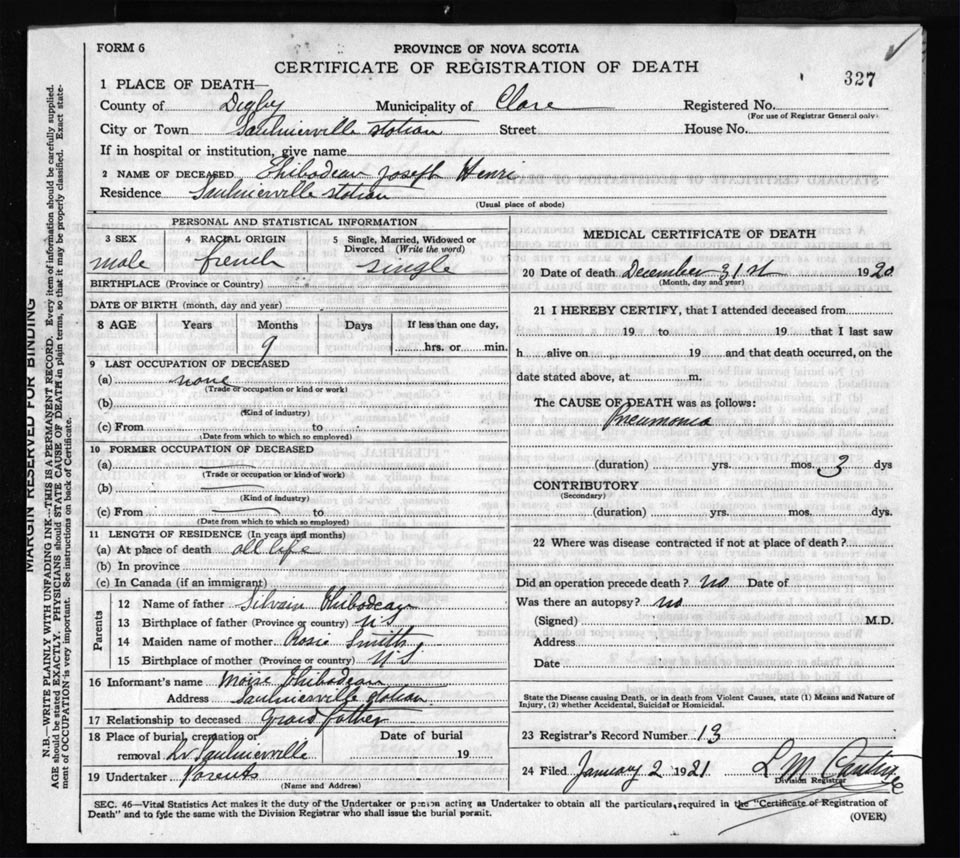 FORM 6
PROVINCE OF NOVA SCOTIA
CERTIFICATE OF REGISTRATION OF DEATH
327
1 PLACE OF DEATH—
County of Digby Municipality of Clare Registered No.
(For use of Registrar General only)
City or Town Saulnierville station Street House No.
If in hospital or institution, give name
2 NAME OF DECEASED Thibodeau Joseph Henri
Residence Saulnierville station
(Usual place of abode)
PERSONAL AND STATISTICAL INFORMATION
3 SEX 4 RACIAL ORIGIN 5 Single, Married, Widowed or Divorced (Write the word)
male french single
BIRTHPLACE (Province or Country)
DATE OF BIRTH (month, day and year)
8 AGE Years Months Days If less than one day,
9 hrs. or min.
9 LAST OCCUPATION OF DECEASED
(a) none
(Trade or occupation or kind or work)
(b)
(Kind of industry)
(c) From to
(Date from which to which so employed)
10 FORMER OCCUPATION OF DECEASED
(a)
(Trade or occupation or kind of work)
(b)
(Kind of industry)
(c) From to
(Date from which to which so employed)
11 LENGTH OF RESIDENCE (In years and months)
(a) At place of death all life
(b) In province
(c) In Canada (if an immigrant)
Parents
12 Name of father Silvain Thibodeau
13 Birthplace of father (Province or country) U S
14 Maiden name of mother Rosie Smith
15 Birthplace of mother (Province or country) U S
16 Informant's name Moise Thibodeau
Address Saulnierville station
17 Relationship to deceased grand father
18 Place of burial, cremation or removal Lr Saulnierville Date of burial 19
19 Undertaker Parents
(Name and Address)
MEDICAL CERTIFICATE OF DEATH
20 Date of death December 31st 1920
(Month, day and year)
21 I HEREBY CERTIFY, that I attended deceased from
19 to 19 that I last saw
h alive on 19 and that death occurred, on the
date stated above, at m.
The CAUSE OF DEATH was as follows:
Pneumonia
(duration) yrs. mos. 3 dys
CONTRIBUTORY
(Secondary)
(duration) yrs. mos. dys.
22 Where was disease contracted if not at place of death?
Did an operation precede death? no Date of
Was there an autopsy? no
(Signed) M.D.
Address
Date
State the Disease causing Death, or in death from Violent Causes, state (1) Means and Nature of
Injury, (2) whether Accidental, Suicidal or Homicidal.
23 Registrar's Record Number 13
24 Filed January 2 1921 L M
Division Registrar
SEC. 46—Vital Statistics Act makes it the duty of the Undertaker or person acting as Undertaker to obtain all the particulars required in the "Certificate of Registration of
Death" and to fyle the same with the Division Registrar who shall issue the burial permit.
(OVER)
MARGIN RESERVED FOR BINDING
N.B.—WRITE PLAINLY WITH UNFADING INK—THIS IS A PERMANENT RECORD. Every item of information should be carefully supplied.
AGE should be stated EXACTLY. PHYSICIANS should STATE CAUSE OF DEATH in plain terms, so that it may be properly classified. Exact state-
ment of OCCUPATION is very important. See instructions on back of Certificate.